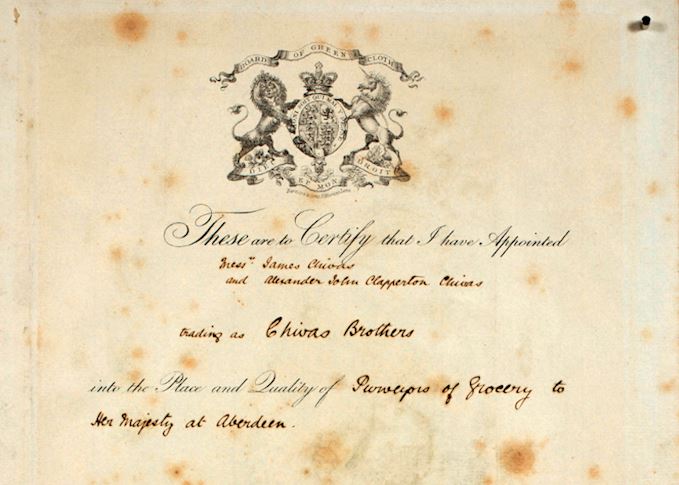 BOARD OF GREEN CLOTH
HONI SOIT QUI MAL Y PENSE
DIEU ET MON DROIT
These are to Certify that I have Appointed
Messrs. James Chivas
and Alexander John Clapperton Chivas
trading as Chivas Brothers
into the Place and Quality of Purveyors of Grocery to
Her Majesty at Aberdeen.